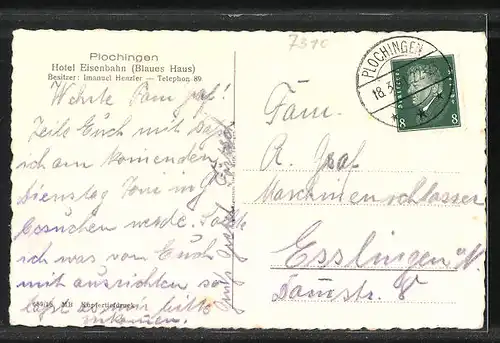 Plochingen
Hotel Eisenbahn (Blaues Haus)
Besitzer: Imanuel Henzler — Telephon 89
7310
PLOCHINGEN
18.3.
Deutsches Reich
8 8
Werte Fam. Graf!
Teile Euch mit daß
ich am komenden
Dienstag
besuchen werde. Sollte
ich was vom Euch
mit ausrichten so
laßt es mir bitte
zukommen.
Fam.
A. Graf
Maschinenschlosser
Esslingen a/N.
Mit Kupfertiefdruck